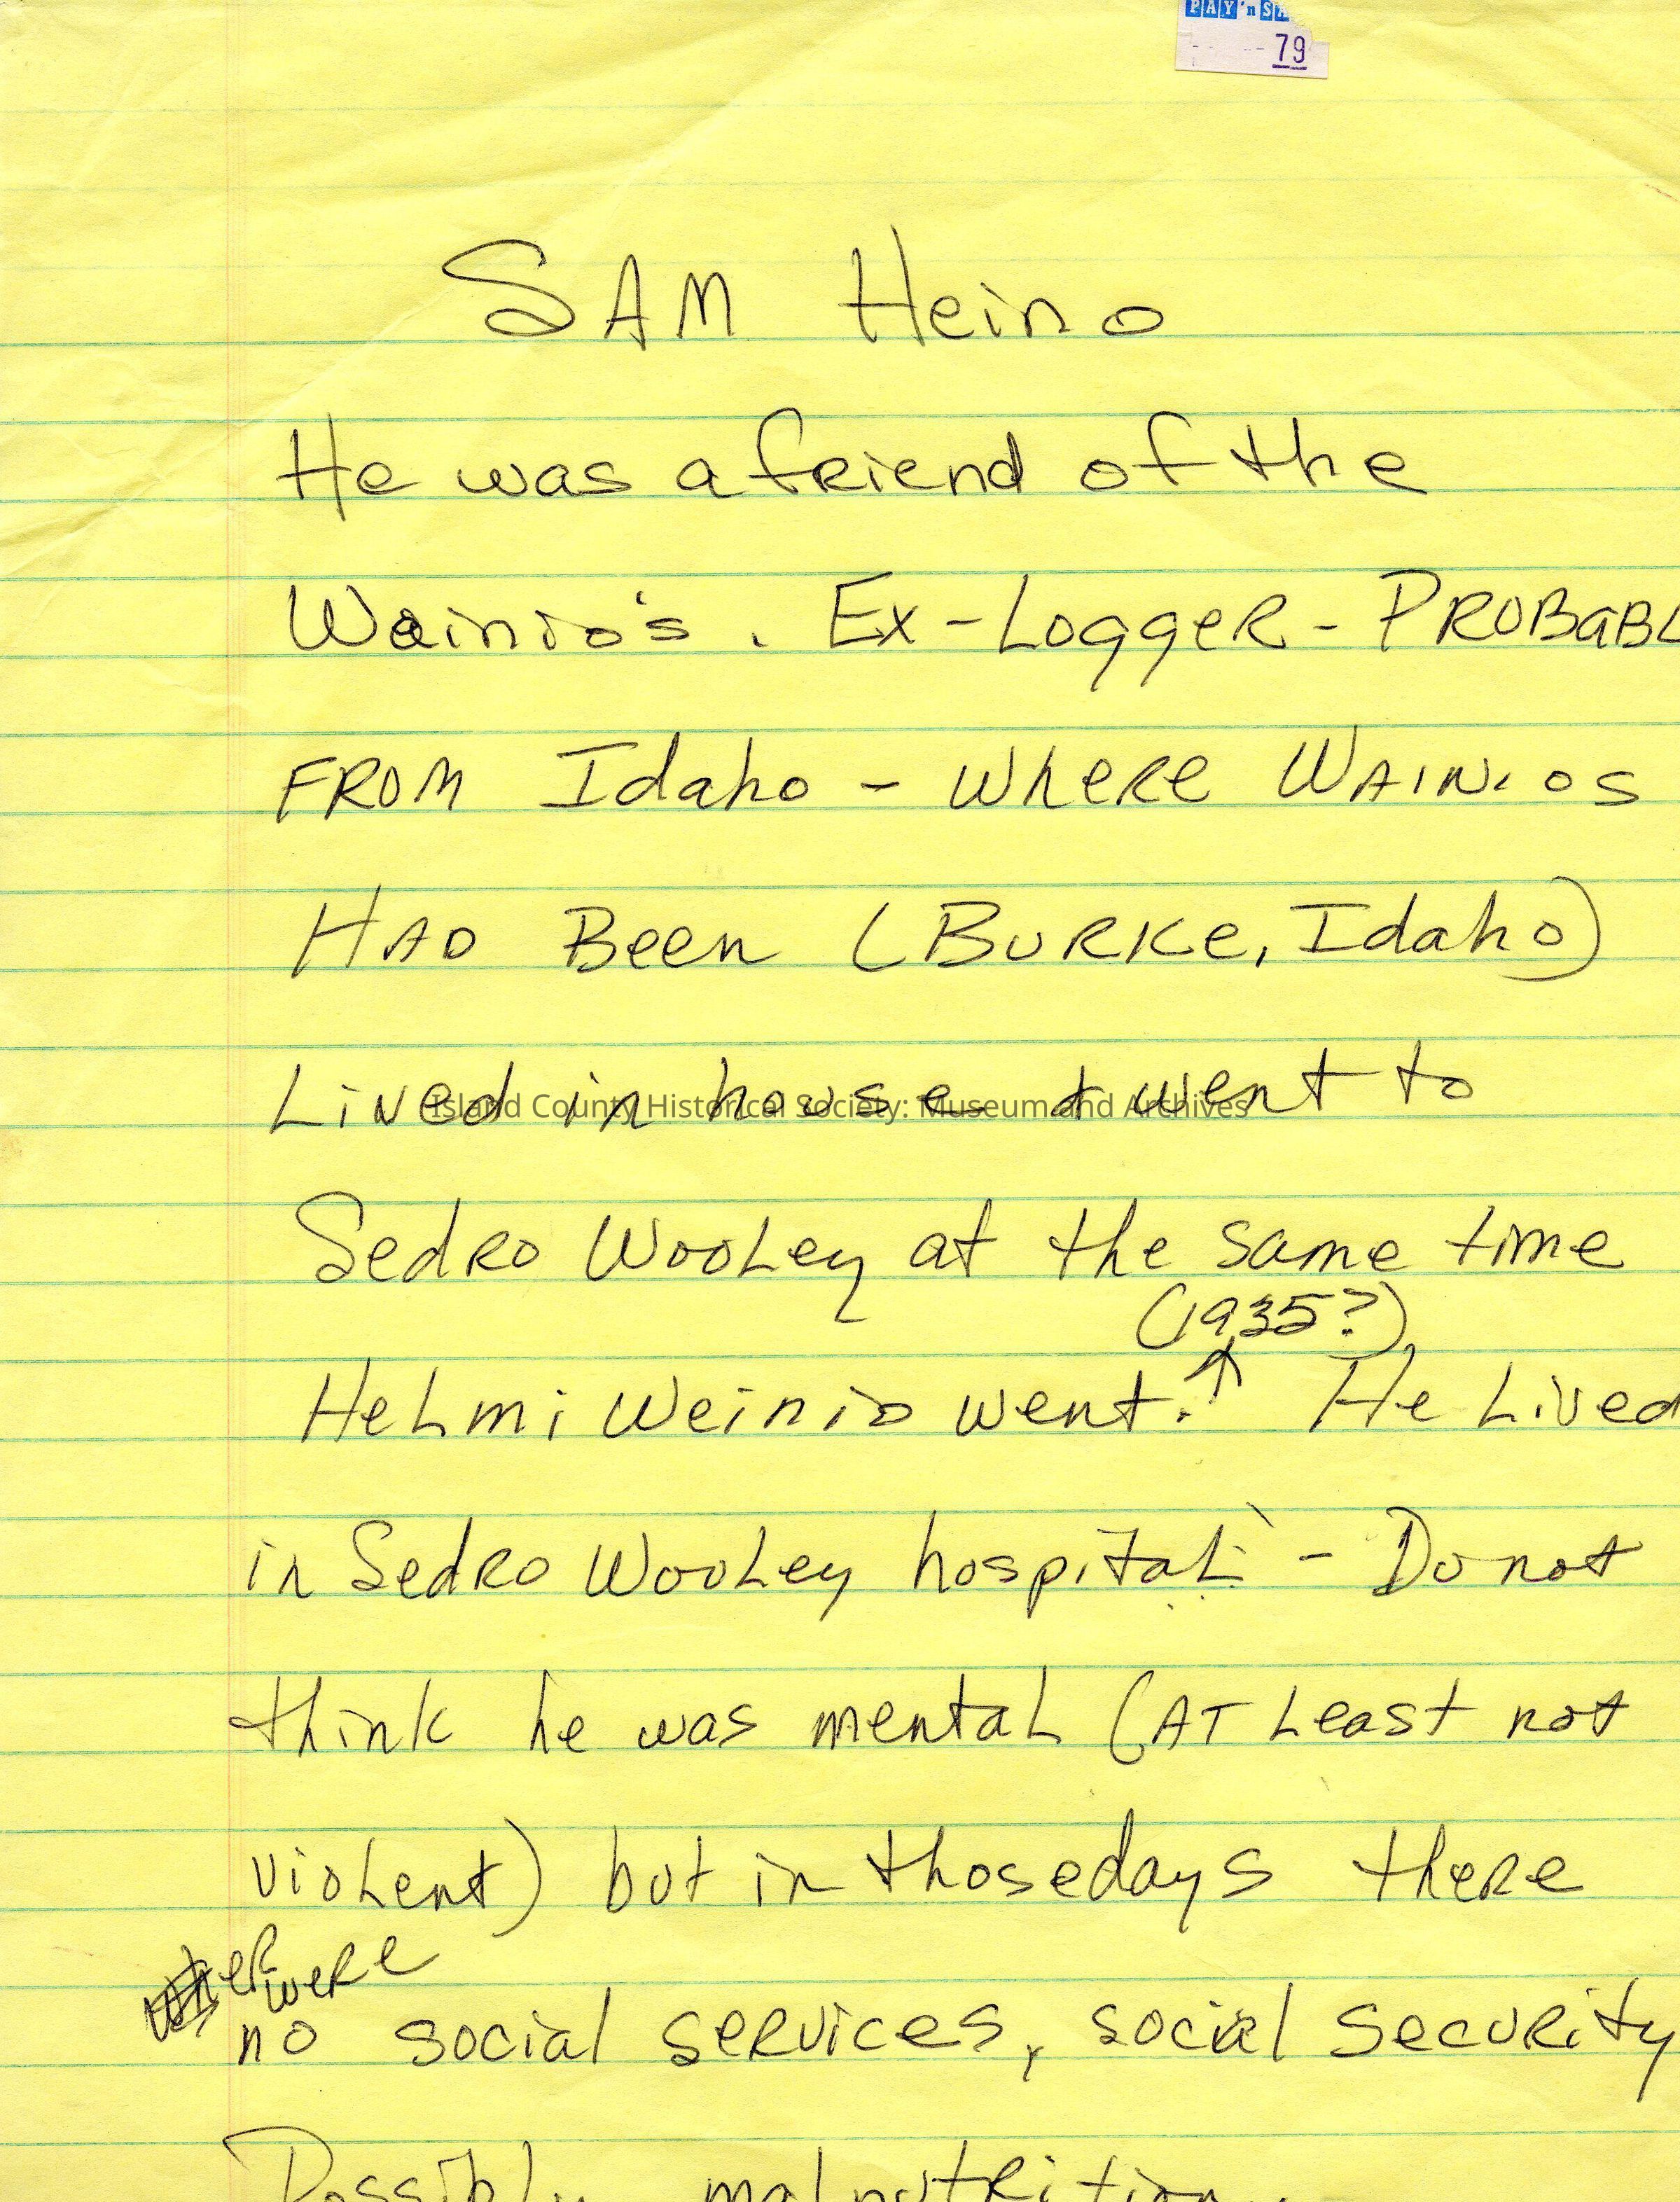 PAY'n SA
79
SAM Heino
He was a friend of the
Wainio's. Ex-Logger - PROBABL
FROM Idaho - where WAINIOS
HAD Been (BURKe, Idaho)
Lived in house & went to
Island County Historical Society: Museum and Archives
Sedro Wooley at the same time
(1935?)
Helmi Weinio went. ↑ He Lived
in Sedro Wooley hospital - Do not
think he was mental (AT Least not
violent) but in those days there
were
no social services, social security
Possibly malnutrition